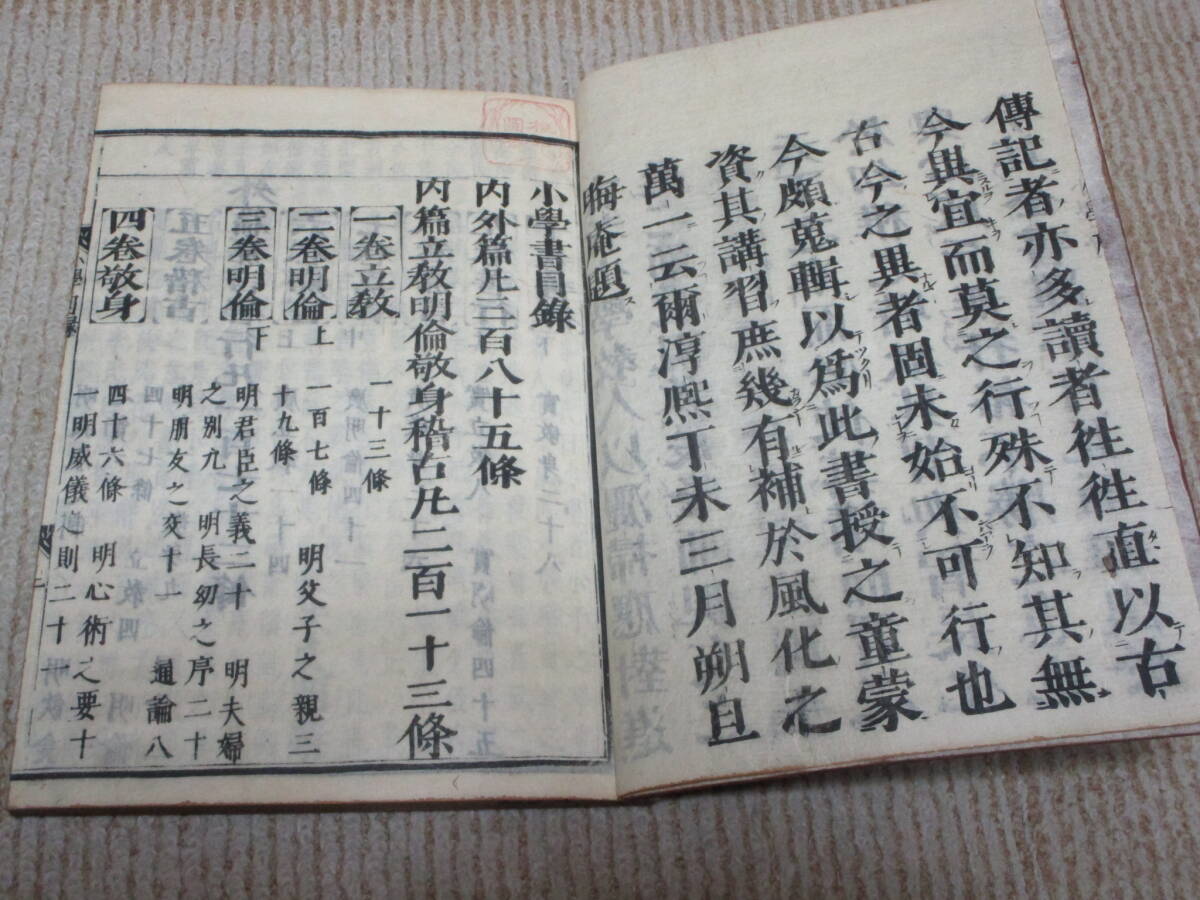 傳記者亦多讀者徃徃直以古
今異宜而莫之行殊不知其無
古今之異者固未始不可行也
今頗蒐輯以爲此書授之童蒙
資其講習庶幾有補於風化之
萬一云爾淳熈丁未三月朔旦
晦庵題
小學書目錄
内外篇凡三百八十五條
内篇立敎明倫敬身稽古凡二百一十三條
一卷立敎
一十三條
二卷明倫上
一百七條 明父子之親三
十九條
三卷明倫下
明君臣之義二十 明夫婦
之别九 明長幼之序二十
明朋友之交十一 通論八
四卷敬身
四十六條 明心術之要十
一明威儀之則二十